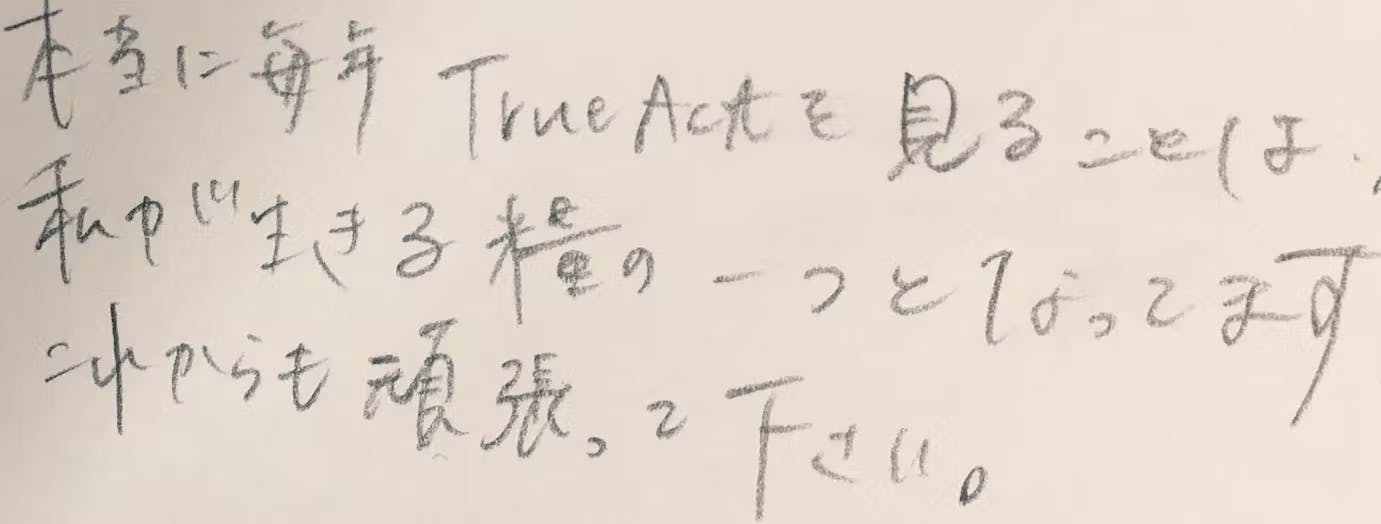 本当に毎年 True Actを見ることは、
私が生きる糧の一つとなってます
これからも頑張って下さい。